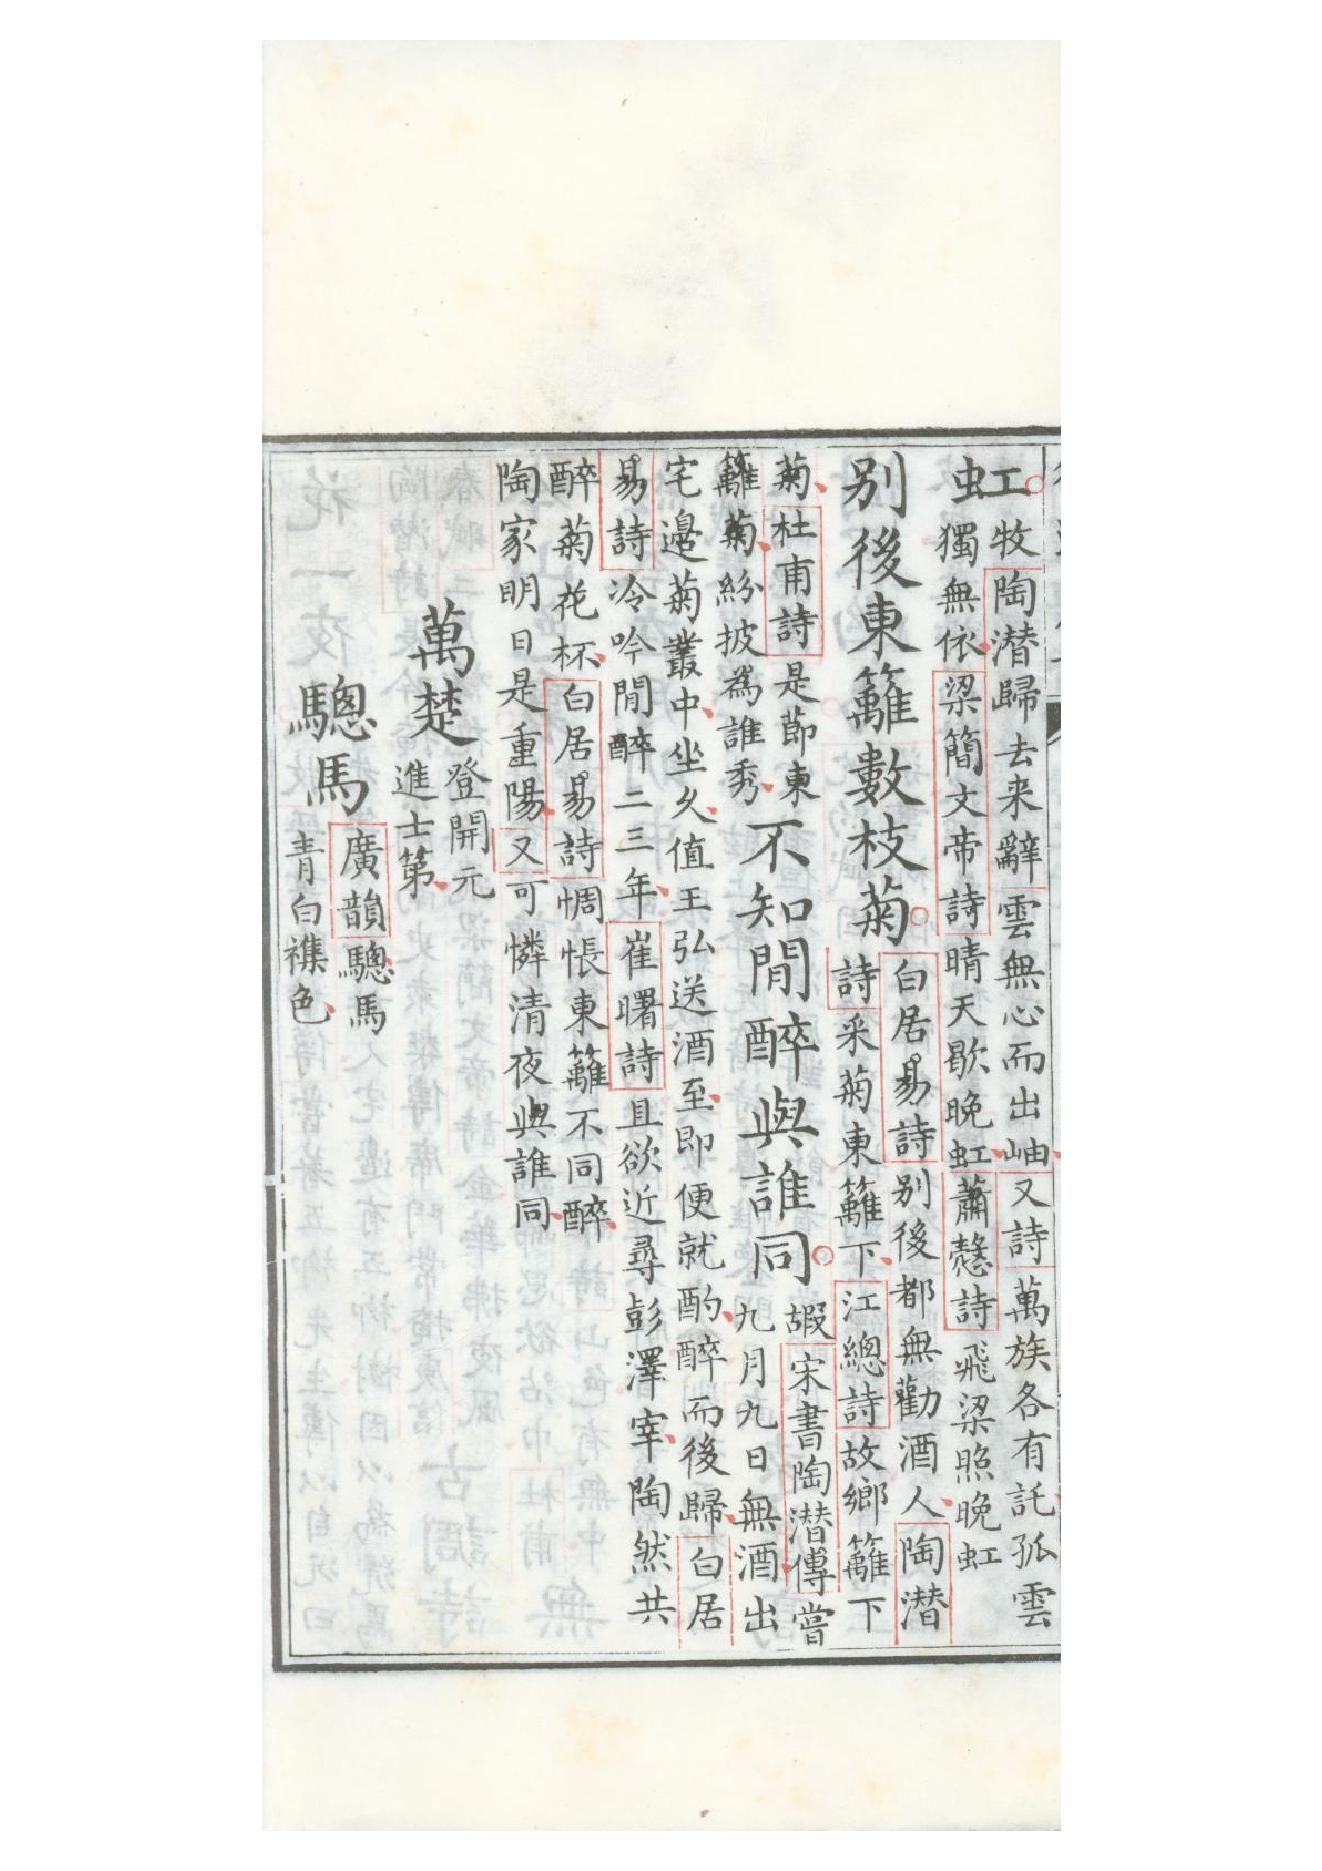 虹
牧陶潜歸去来辭雲無心而出岫又詩萬族各有託孤雲
獨無依梁簡文帝詩晴天歇晚虹蕭慤詩飛梁照晚虹
别後東籬數枝菊
白居易詩别後都無勸酒人陶潜
詩采菊東籬下江總詩故鄉籬下
菊杜甫詩是莭東
籬菊紛披為誰秀
不知閒醉與誰同
嘏宋書陶潜傳嘗
九月九日無酒出
宅邉菊叢中坐久值王弘送酒至即便就酌醉而後歸白居
易詩冷吟閒醉二三年崔曙詩且欲近尋彭澤宰陶然共
醉菊花杯白居易詩惆悵東籬不同醉
陶家明日是重陽又可憐清夜與誰同
萬楚
登開元
進士第
驄馬
廣韻驄馬
青白襍色